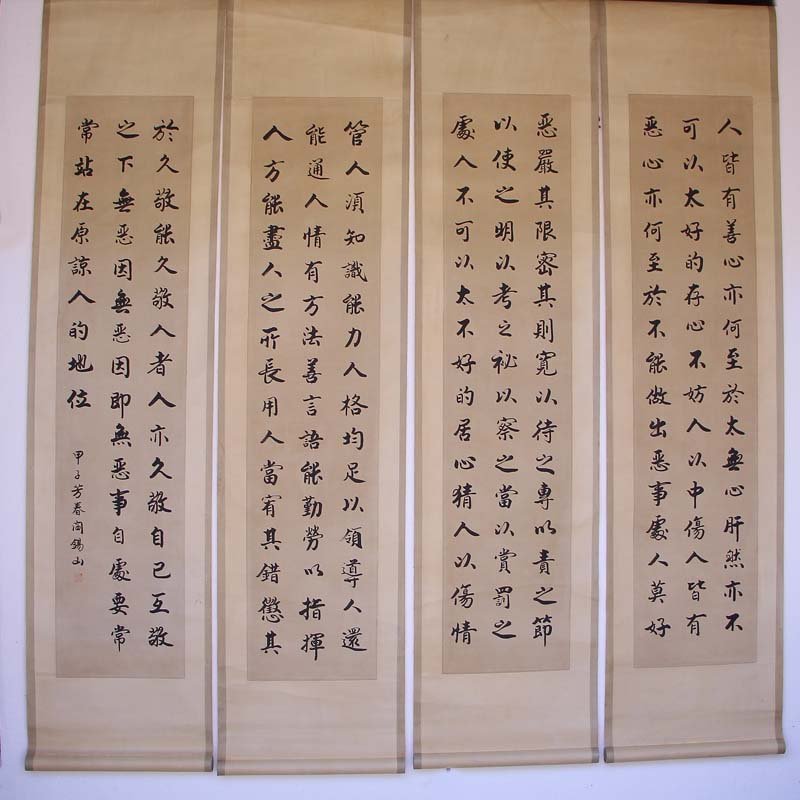 人皆有善心亦何至於太無心肝然亦不
可以太好的存心不妨人以中傷人皆有
惡心亦何至於不能做出惡事處人莫好
惡嚴其限密其則寬以待之專以責之節
以使之明以考之祕以察之當以賞罰之
處人不可以太不好的居心猜人以傷情
管人須知識能力人格均足以領導人還
能通人情有方法善言語能勤勞以指揮
人方能盡人之所長用人當宥其錯懲其
於久敬能久敬人者人亦久敬自已互敬
之下無惡因無惡因即無惡事自處要常
常站在原諒人的地位
甲子芳春閻錫山